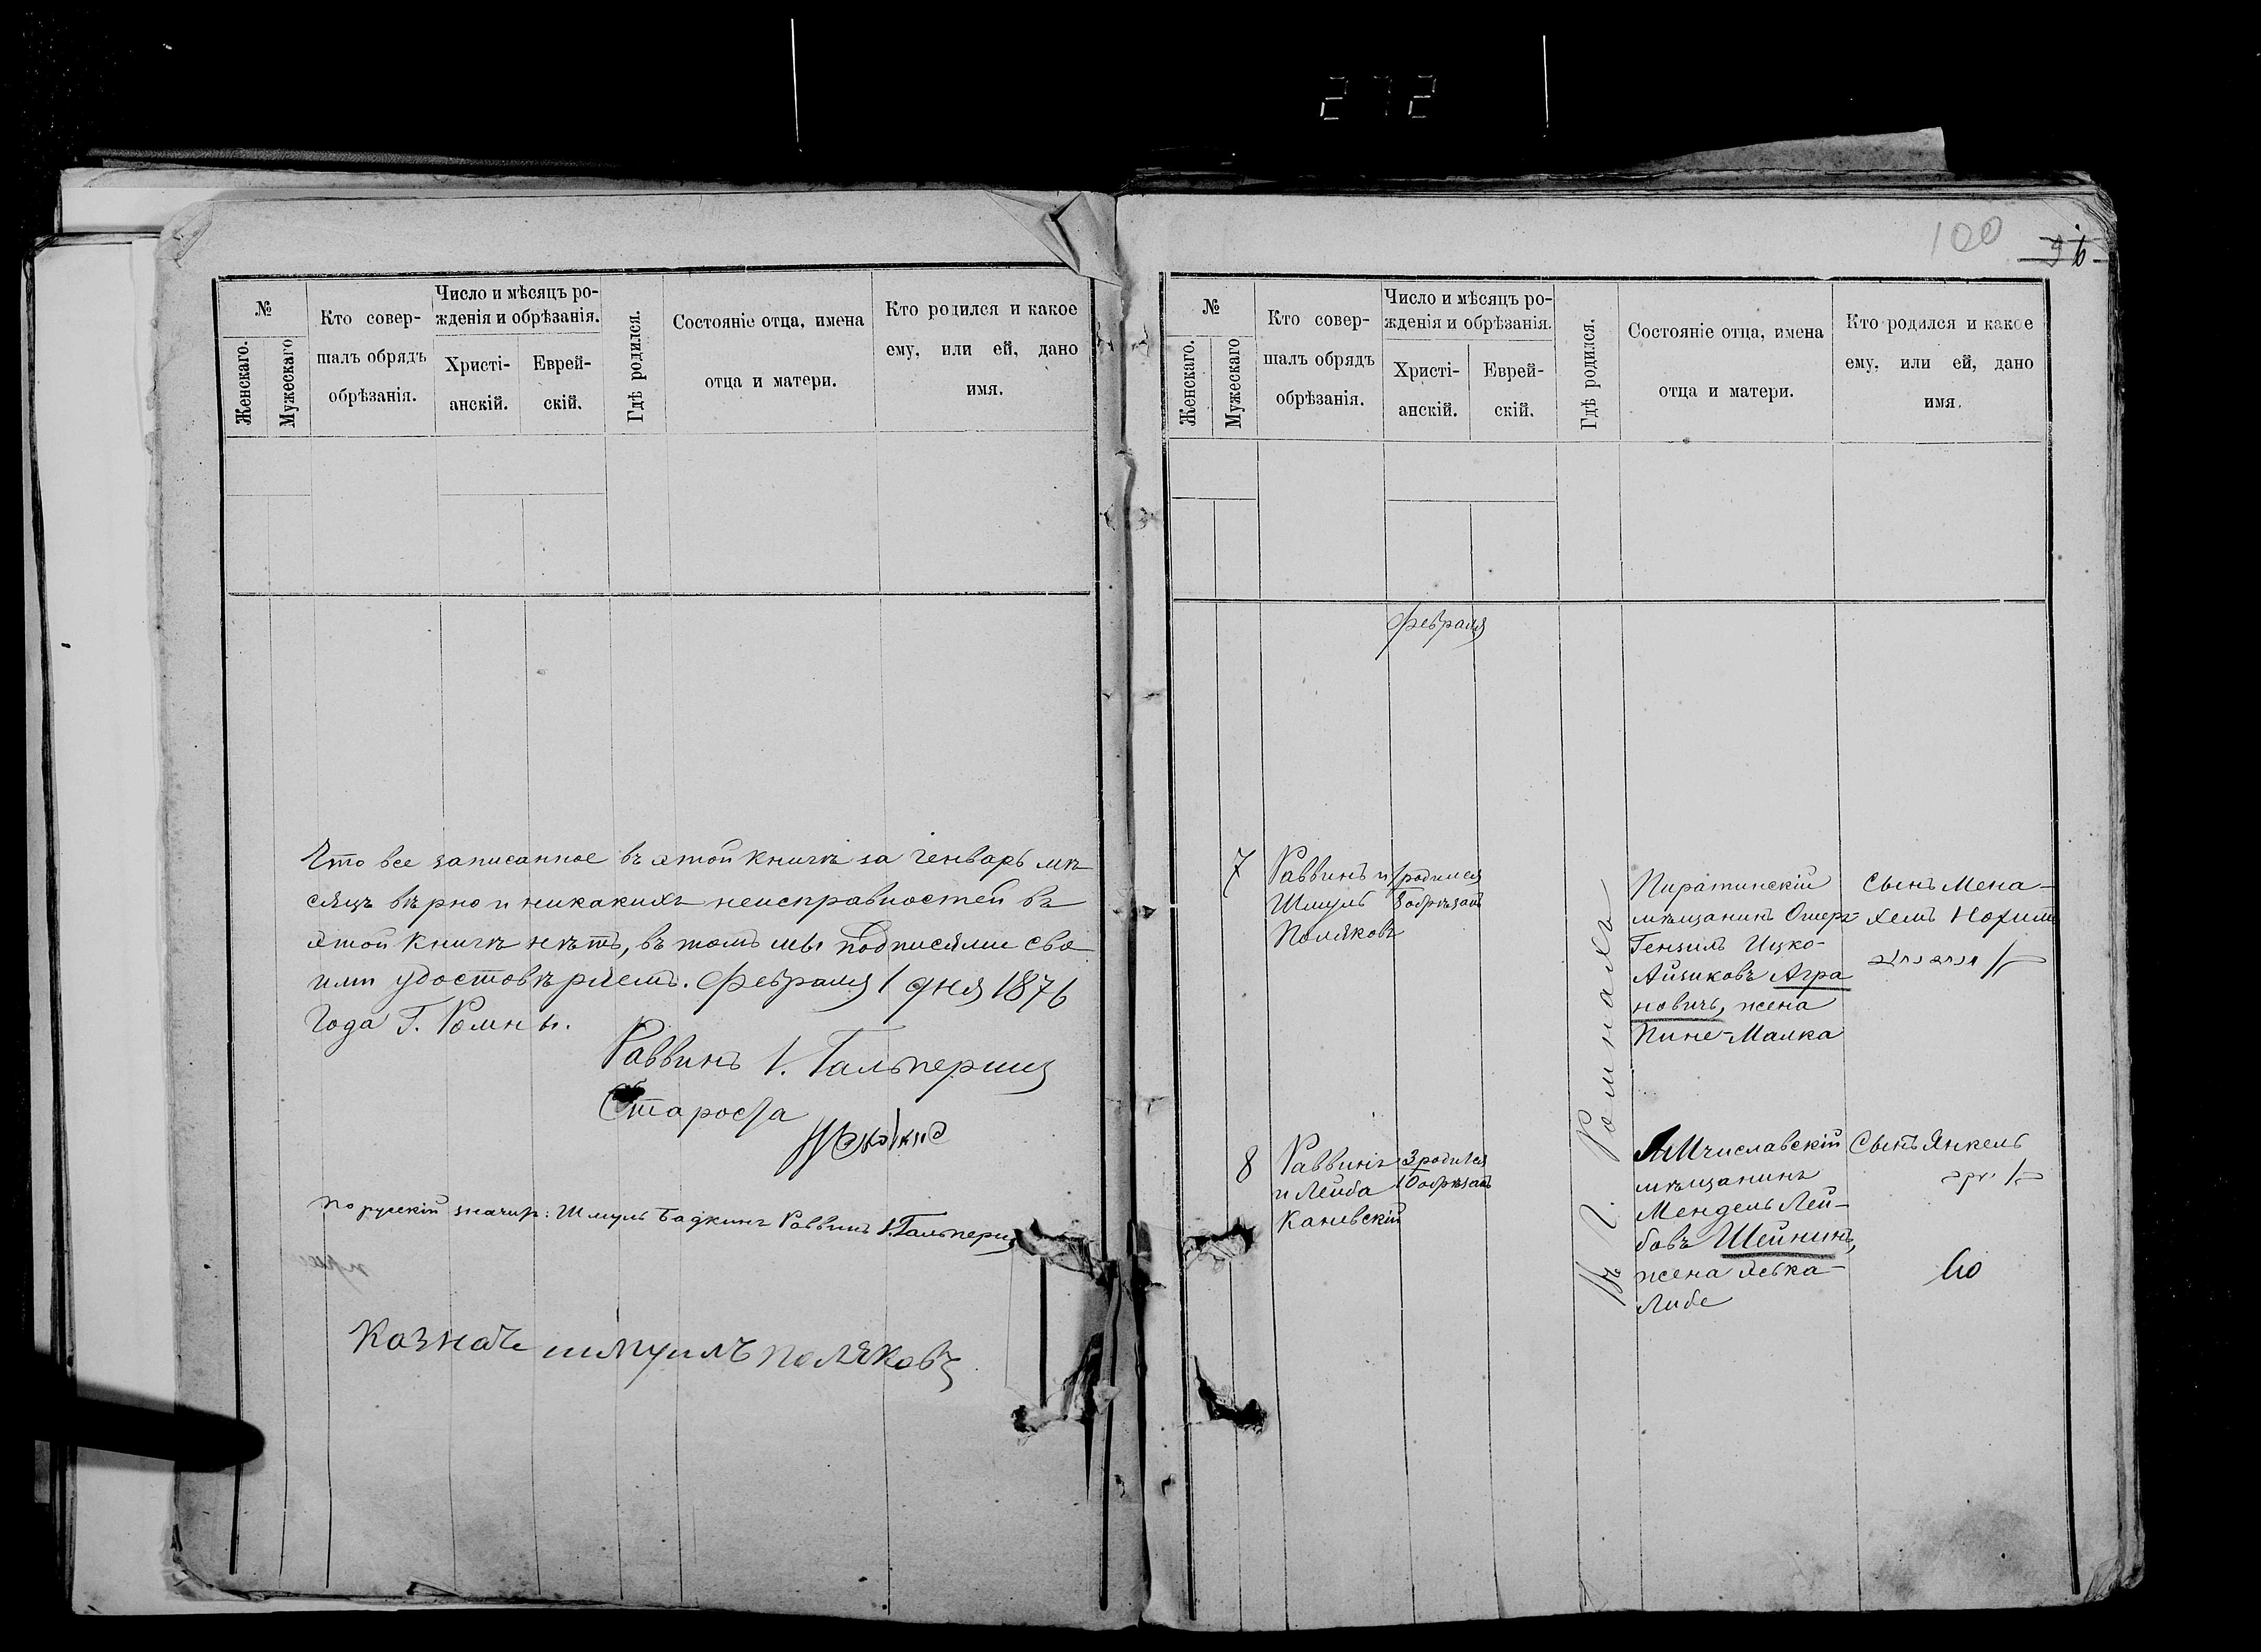 272
№
Женскаго.
Мужескаго
Кто совер-
шалъ обрядъ
обрѣзанія.
Число и мѣсяцъ ро-
жденія и обрѣзанія.
Христі-
анскій.
Еврей-
скій.
Гдѣ родился.
Состояніе отца, имена
отца и матери.
Кто родился и какое
ему, или ей, дано
имя.
Что все записанное въ этой книгѣ за Генварь мѣ
сяцъ вѣрно и никакихъ неисправностей въ
этой книгѣ нѣтъ, въ томъ мы подписями сво
ими удостовѣряемъ. Февраля 1 дня 1876
года Г. Ромны.
Раввинъ І. Гальперинъ
Староста
по русскій значит: Шмуль Бадкинъ Раввинъ І. Гальперинъ
Казначе шмуилъ поляковъ
100
№
Женскаго.
Мужескаго
Кто совер-
шалъ обрядъ
обрѣзанія.
Число и мѣсяцъ ро-
жденія и обрѣзанія.
Христі-
анскій.
Еврей-
скій.
Гдѣ родился.
Состояніе отца, имена
отца и матери.
Кто родился и какое
ему, или ей, дано
имя.
Февраля
7
Раввинъ и
Шмуль
Поляковъ
1 родился
8 обрѣзанъ
Въ Г. Ромнахъ
Пирятинскій
мѣщанинъ Ошеръ
Гензилъ Ицко-
Айзиковъ Агра
новичъ, жена
Пине-Малка
Сынъ Мена-
хемъ Нохимъ
8
Раввинъ
и Лейба
Каневскій
3 родился
10 обрѣзанъ
Мчиславскій
мѣщанинъ
Мендель Лей-
бовъ Шейнинъ,
жена Хевка-
Либе
Сынъ Янкель